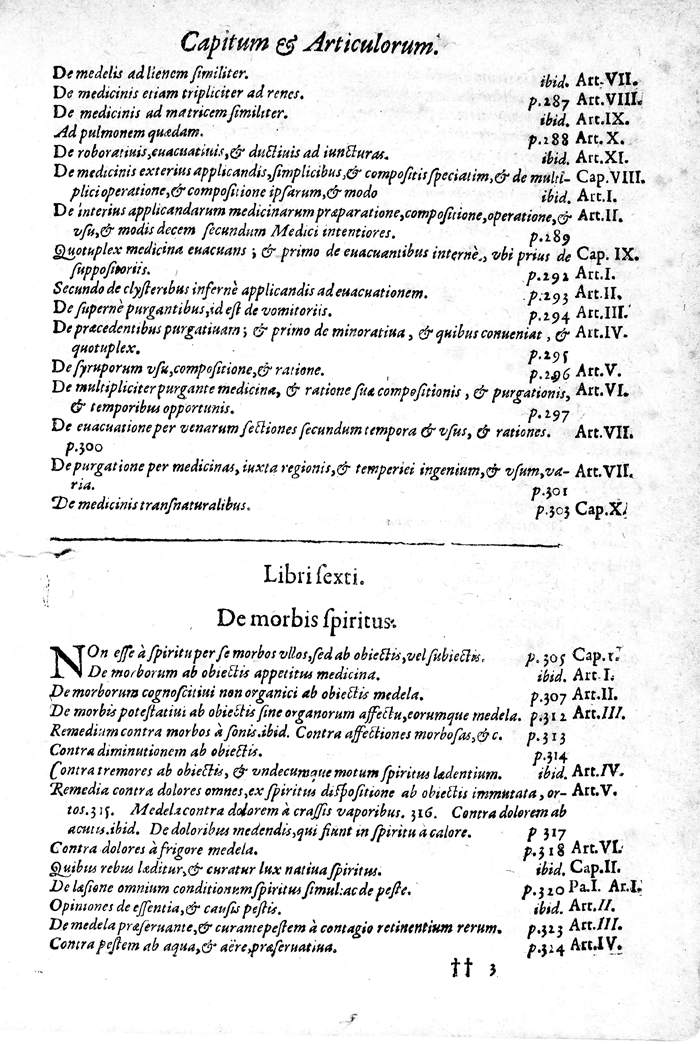 Capitum & Articulorum.
De medelis ad lienem ſimiliter. ibid. Art.VII.
De medicinis etiam tripliciter ad renes. p.287 Art.VIII.
De medicinis ad matricem ſimiliter. ibid. Art.IX.
Ad pulmonem quædam. p.288 Art.X.
De roboratiuis, euacuatiuis, & ductiuis ad iuncturas. ibid. Art.XI.
De medicinis exterius applicandis, ſimplicibus, & compoſitis ſpeciatim, & de multi- Cap.VIII.
plici operatione, & compoſitione ipſarum, & modo ibid. Art.I.
De interius applicandarum medicinarum præparatione, compoſitione, operatione, & Art.II.
vſu, & modis decem ſecundum Medici intentiores. p.289
Quotuplex medicina euacuans; & primo de euacuantibus internè, vbi prius de Cap. IX.
ſuppoſitoriis. p.292 Art.I.
Secundo de clyſteribus infernè applicandis ad euacuationem. p.293 Art.II.
De ſupernè purgantibus, id eſt de vomitoriis. p.294 Art.III.
De præcedentibus purgatiuam; & primo de minoratiua, & quibus conueniat, & Art.IV.
quotuplex. p.295
De ſyruporum vſu, compoſitione, & ratione. p.296 Art.V.
De multipliciter purgante medicina, & ratione ſuæ compoſitionis, & purgationis, Art.VI.
& temporibus opportunis. p.297
De euacuatione per venarum ſectiones ſecundum tempora & vſus, & rationes. Art.VII.
p.300
De purgatione per medicinas, iuxta regionis, & temperiei ingenium, & vſum, va- Art.VII.
ria. p.301
De medicinis transnaturalibus. p.303 Cap.X.
Libri ſexti.
De morbis ſpiritus.
NOn eſſe à ſpiritu per ſe morbos vllos, ſed ab obiectis, vel ſubiectis. p.305 Cap.1.
De morborum ab obiectis appetitus medicina. ibid. Art.I.
De morborum cognoſcitiui non organici ab obiectis medela. p.307 Art.II.
De morbis poteſtatiui ab obiectis ſine organorum affectu, eorumque medela. p.312 Art.III.
Remedium contra morbos à ſonis. ibid. Contra affectiones morboſas, &c. p.313
Contra diminutionem ab obiectis. p.314
Contra tremores ab obiectis, & vndecumque motum ſpiritus lædentium. ibid. Art.IV.
Remedia contra dolores omnes, ex ſpiritus diſpoſitione ab obiectis immutata, or- Art.V.
tos. 315. Medela contra dolorem à craſſis vaporibus. 316. Contra dolorem ab
acutis. ibid. De doloribus medendis, qui fiunt in ſpiritu à calore. p 317
Contra dolores à frigore medela. p.318 Art.VI.
Quibus rebus læditur, & curatur lux natiua ſpiritus. ibid. Cap.II.
De læſione omnium conditionum ſpiritus ſimul: ac de peſte. p.320 Pa.I. Ar.I.
Opiniones de eſſentia, & cauſis peſtis. ibid. Art.II.
De medela præſeruante, & curante peſtem à contagio retinentium rerum. p.323 Art.III.
Contra peſtem ab aqua, & aëre, præſeruatiua. p.324 Art.IV.
†† 3
5